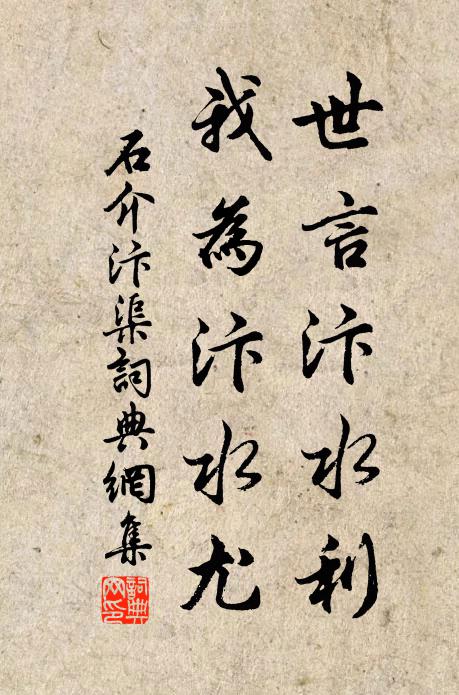 世言汴水利
我為汴水尤
石介汴渠詞典網集
詞典网印